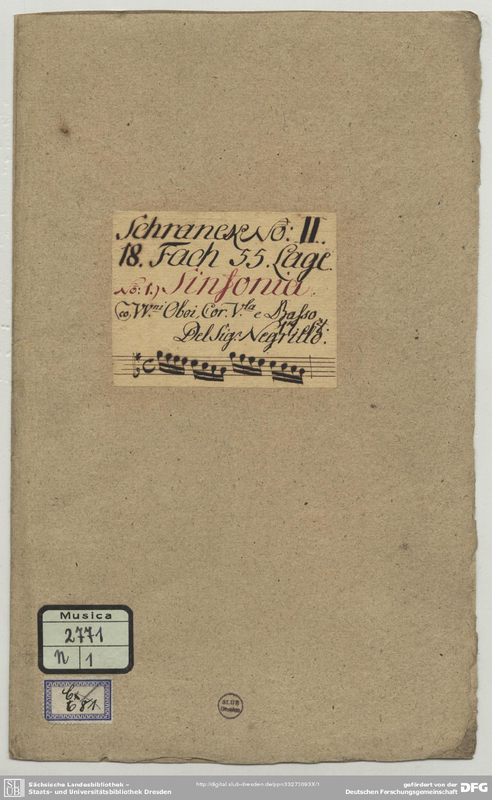 Schranck No: II.
18. Fach 55. Lage.
No: 1.) Sinfonia.
Co VV.ni Oboi, Cor. V.la e Basso
Del Sigr Negritto.
Musica
2771
N 1
SLUB
Sächsische Landesbibliothek –
Staats- und Universitätsbibliothek Dresden
gefördert von der
Deutschen Forschungsgemeinschaft
DFG